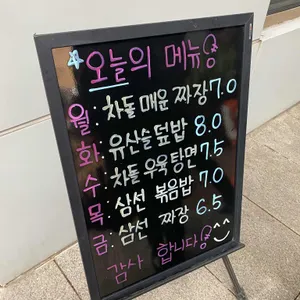 오늘의 메뉴
월: 차돌 매운 짜장 7.0
화: 유산슬 덮밥 8.0
수: 차돌 우육탕면 7.5
목: 삼선 볶음밥 7.0
금: 삼선 짜장 6.5
감사 합니다